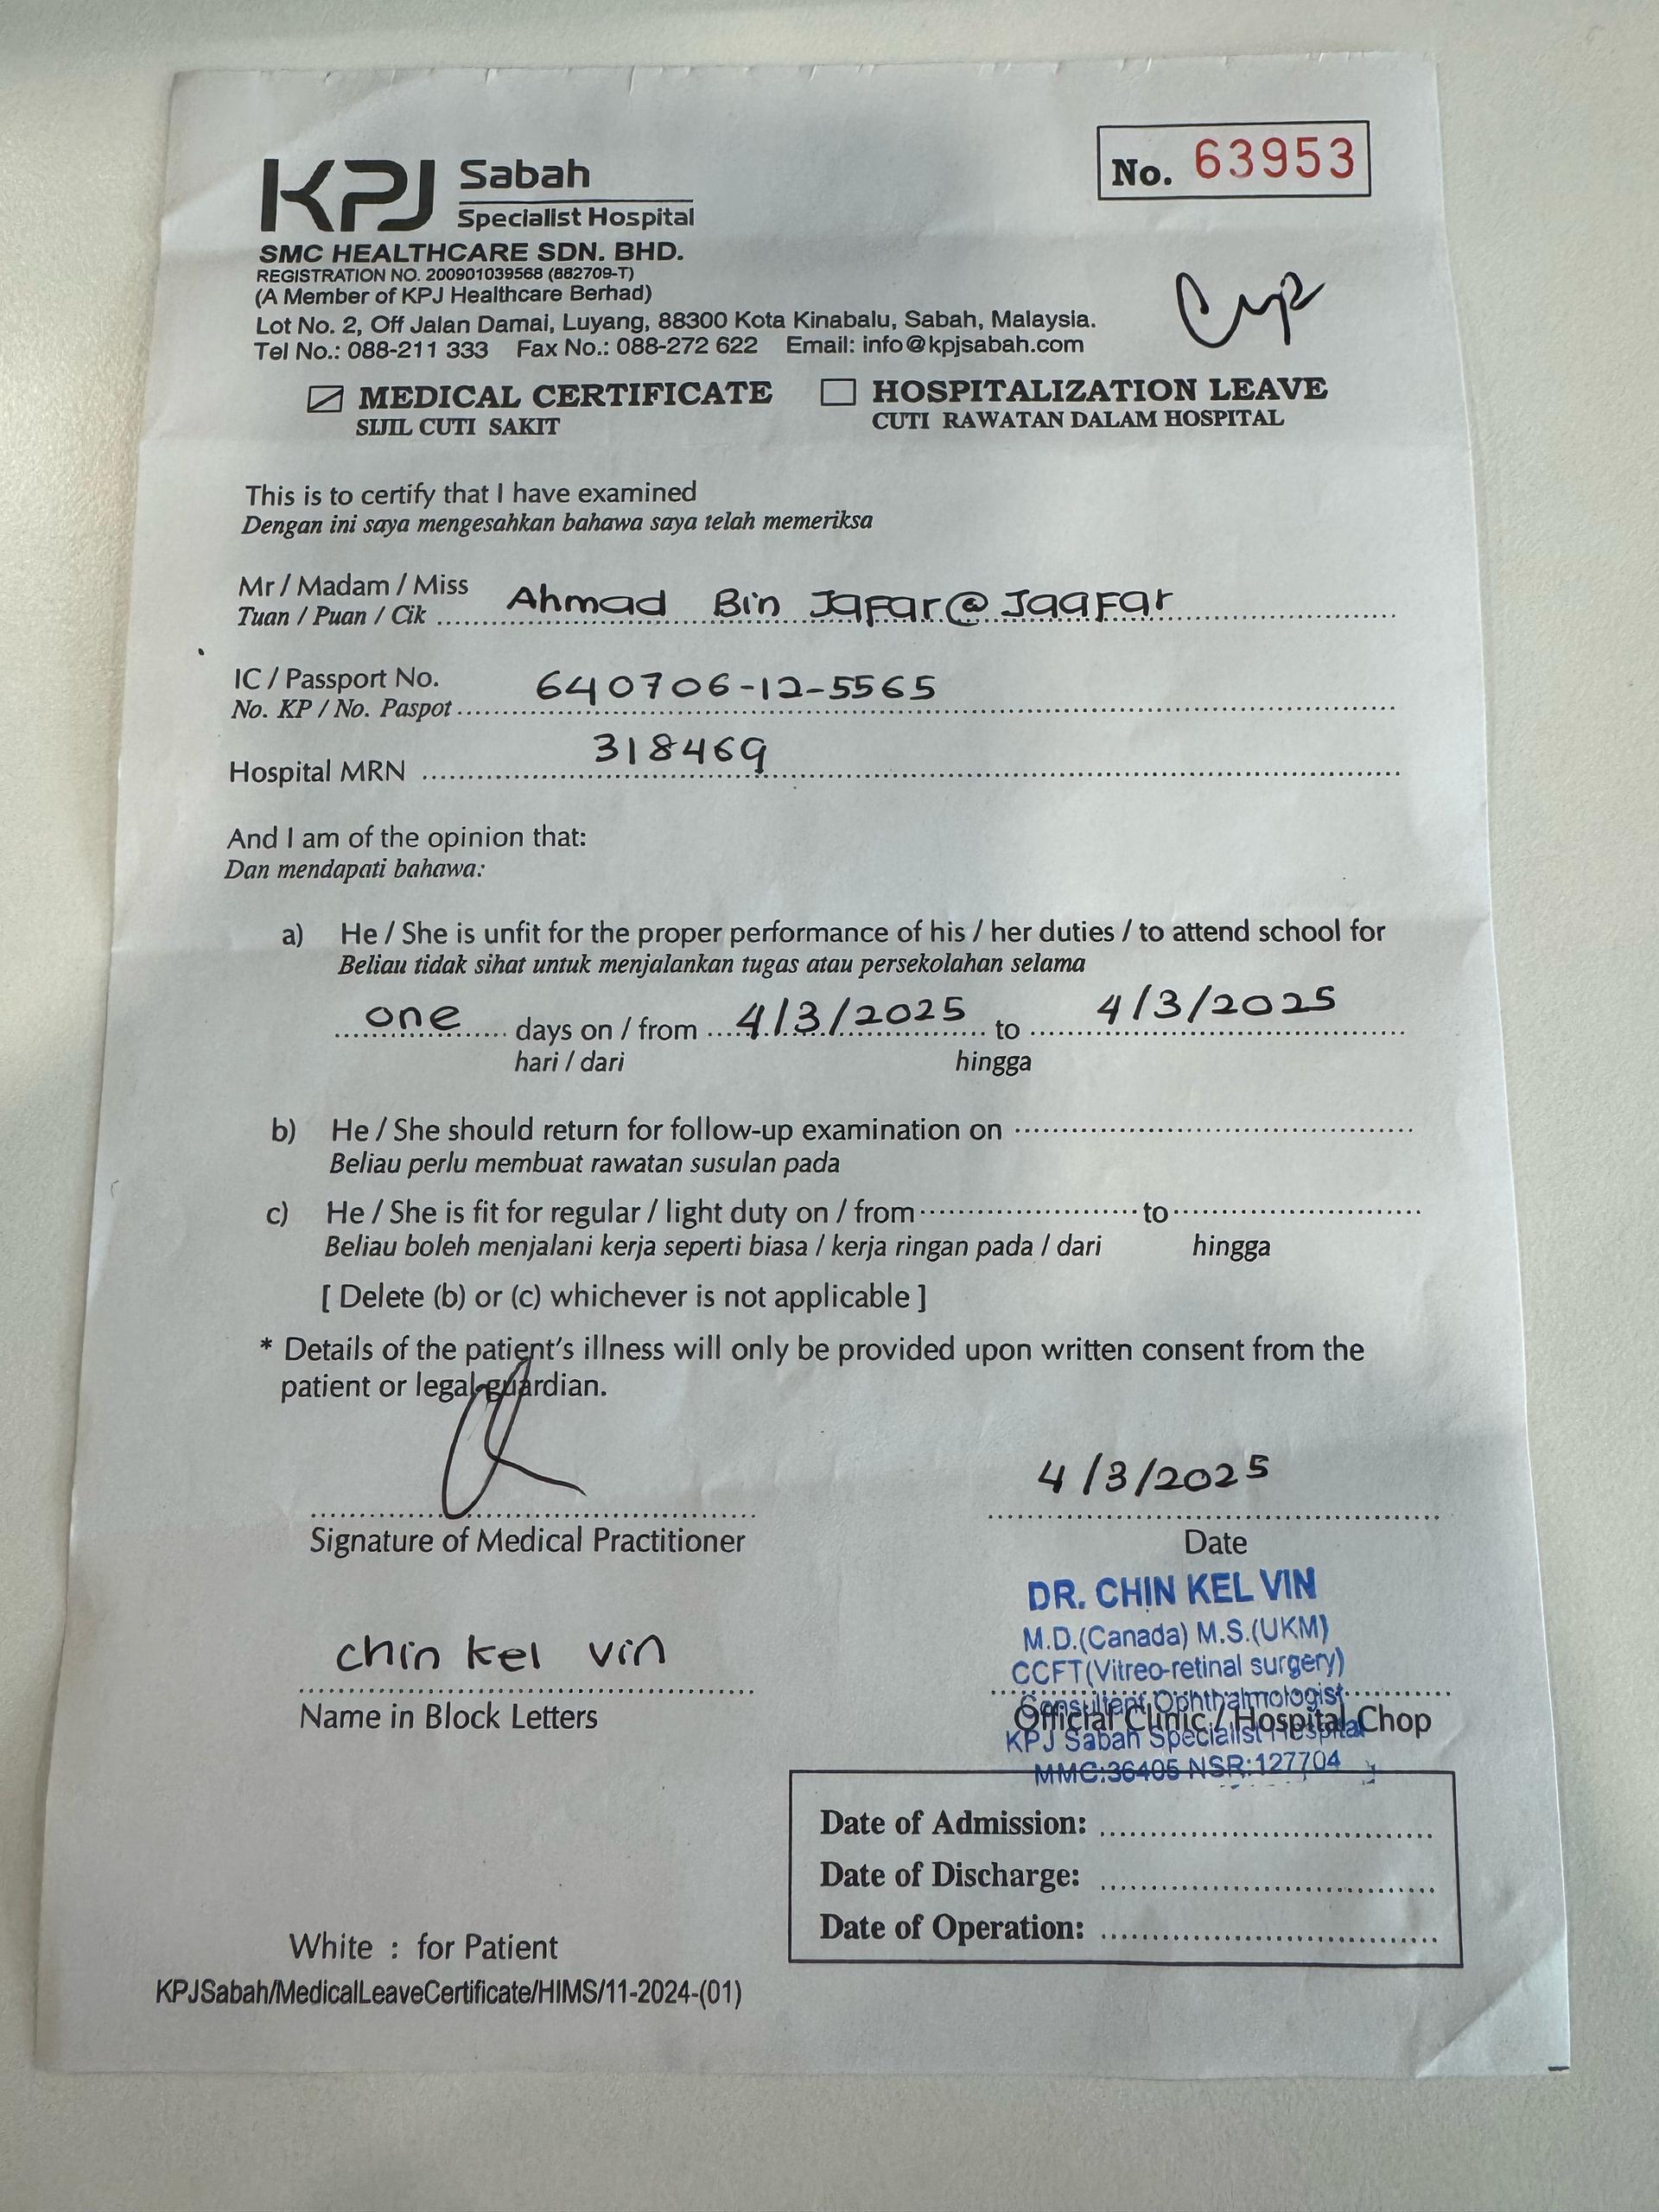 KPJ Sabah
Specialist Hospital
No. 63953
SMC HEALTHCARE SDN. BHD.
REGISTRATION NO. 200901039568 (882709-T)
(A Member of KPJ Healthcare Berhad)
Lot No. 2, Off Jalan Damai, Luyang, 88300 Kota Kinabalu, Sabah, Malaysia.
Tel No.: 088-211 333 Fax No.: 088-272 622 Email: info@kpjsabah.com
MEDICAL CERTIFICATE HOSPITALIZATION LEAVE
SIJIL CUTI SAKIT CUTI RAWATAN DALAM HOSPITAL
This is to certify that I have examined
Dengan ini saya mengesahkan bahawa saya telah memeriksa
Mr / Madam / Miss Ahmad Bin Jafar@Jaafar
Tuan / Puan / Cik
IC / Passport No. 640706-12-5565
No. KP / No. Paspot
Hospital MRN 318469
And I am of the opinion that:
Dan mendapati bahawa:
a) He / She is unfit for the proper performance of his / her duties / to attend school for
Beliau tidak sihat untuk menjalankan tugas atau persekolahan selama
one days on / from 4/3/2025 to 4/3/2025
hari / dari hingga
b) He / She should return for follow-up examination on
Beliau perlu membuat rawatan susulan pada
c) He / She is fit for regular / light duty on / from to
Beliau boleh menjalani kerja seperti biasa / kerja ringan pada / dari hingga
[ Delete (b) or (c) whichever is not applicable ]
* Details of the patient's illness will only be provided upon written consent from the
patient or legal guardian.
4/3/2025
Signature of Medical Practitioner Date
DR. CHIN KEL VIN
M.D.(Canada) M.S.(UKM)
CCFT(Vitreo-retinal surgery)
Consultant Ophthalmologist
KPJ Sabah Specialist Hospital
MMC:36405 NSR:127704
chin kel vin
Name in Block Letters Official Clinic / Hospital Chop
Date of Admission:
Date of Discharge:
Date of Operation:
White : for Patient
KPJSabah/MedicalLeaveCertificate/HIMS/11-2024-(01)